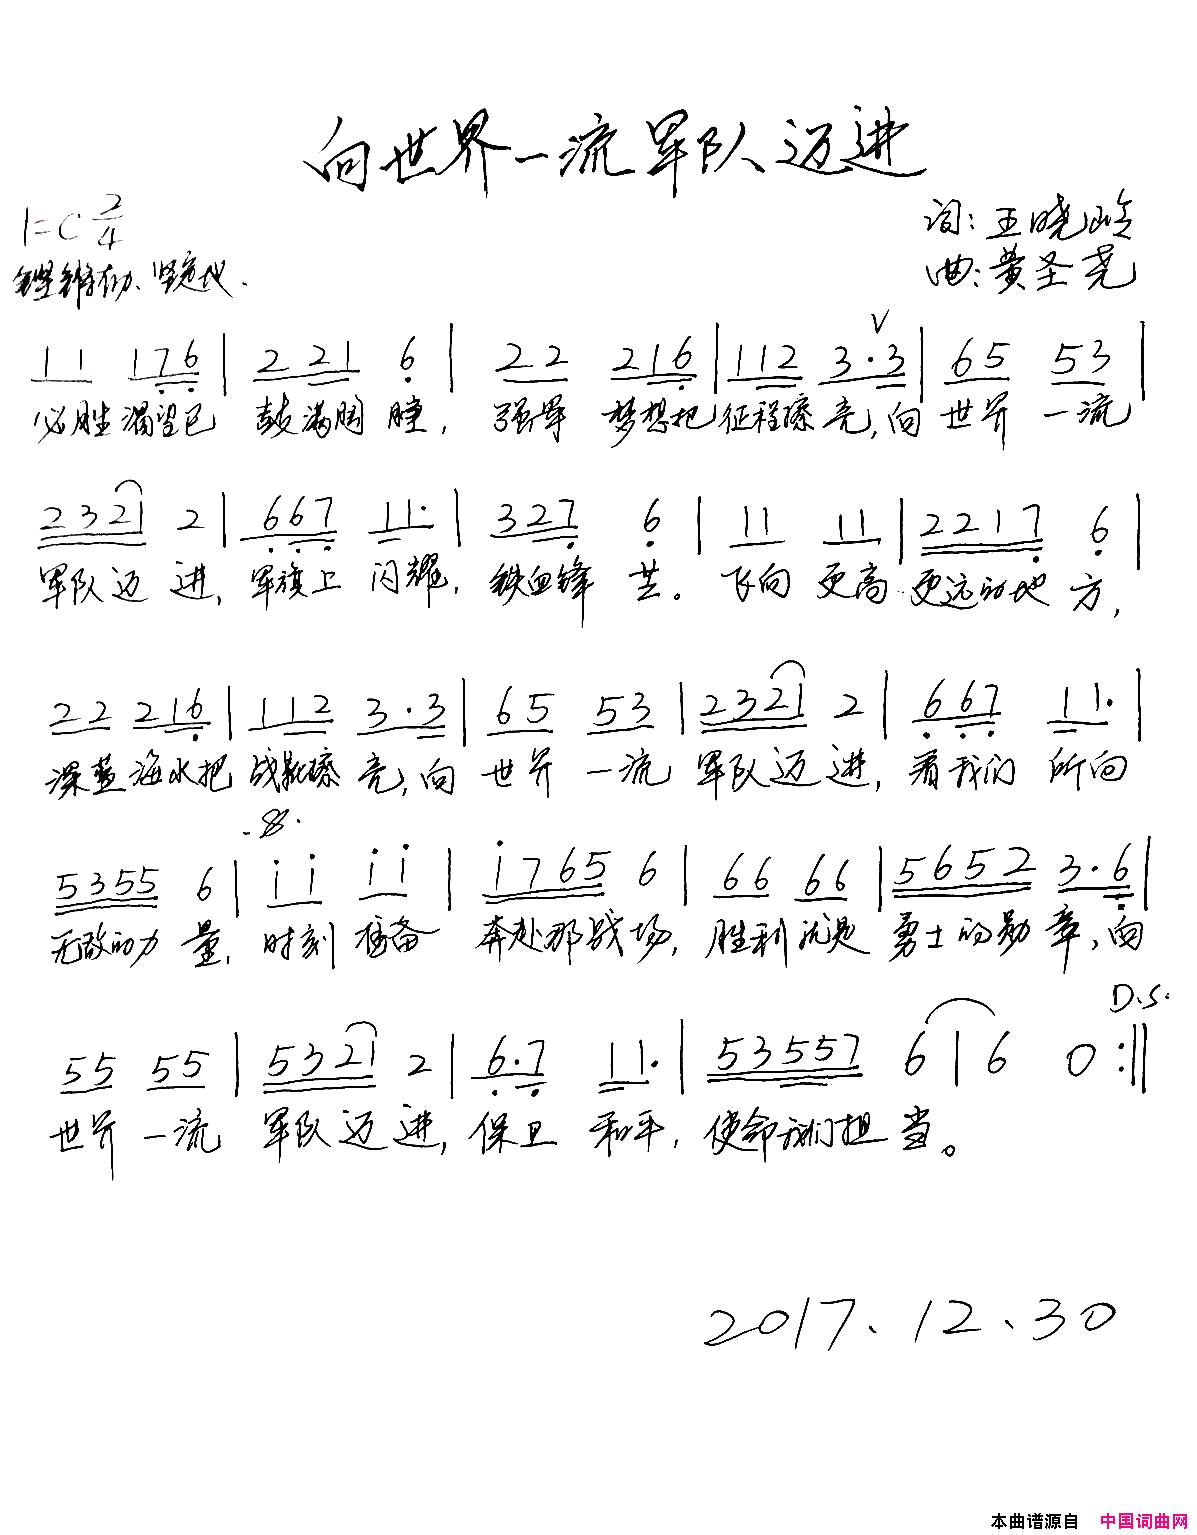 向世界一流军队迈进
1=C 2/4
词:王晓岭
铿锵有力、坚定地.
曲:黄圣尧
V
1 1 1 7 6 | 2 2 1 6 | 2 2 2 1 6 | 1 1 2 3 · 3 | 6 5 5 3 |
必胜渴望已 鼓满胸膛, 强军 梦想把 征程擦亮,向 世界 一流
2 3 2 1 2 | 6 6 7 1 1· | 3 2 7 6 | 1 1 1 1 | 2 2 1 7 6 |
军队迈进, 军旗上 闪耀, 铁血锋芒。 飞向 更高 更远的地方,
2 2 2 1 6 | 1 1 2 3 · 3 | 6 5 5 3 | 2 3 2 1 2 | 6 6 7 1 1· |
深蓝 海水把 战靴擦亮,向 世界 一流 军队迈进, 看我们 所向
5 3 5 5 6 | i i i i | i 7 6 5 6 | 6 6 6 6 | 5 6 5 2 3 · 6 |
无敌的力量, 时刻 准备 奔赴那战场, 胜利就是 勇士的勋章,向
D.S.
5 5 5 5 | 5 3 2 1 2 | 6 · 7 1 1· | 5 3 5 5 7 6 | 6 0 :||
世界 一流 军队迈进, 保卫 和平, 使命我们担当。
2017.12.30
本曲谱源自 中国词曲网